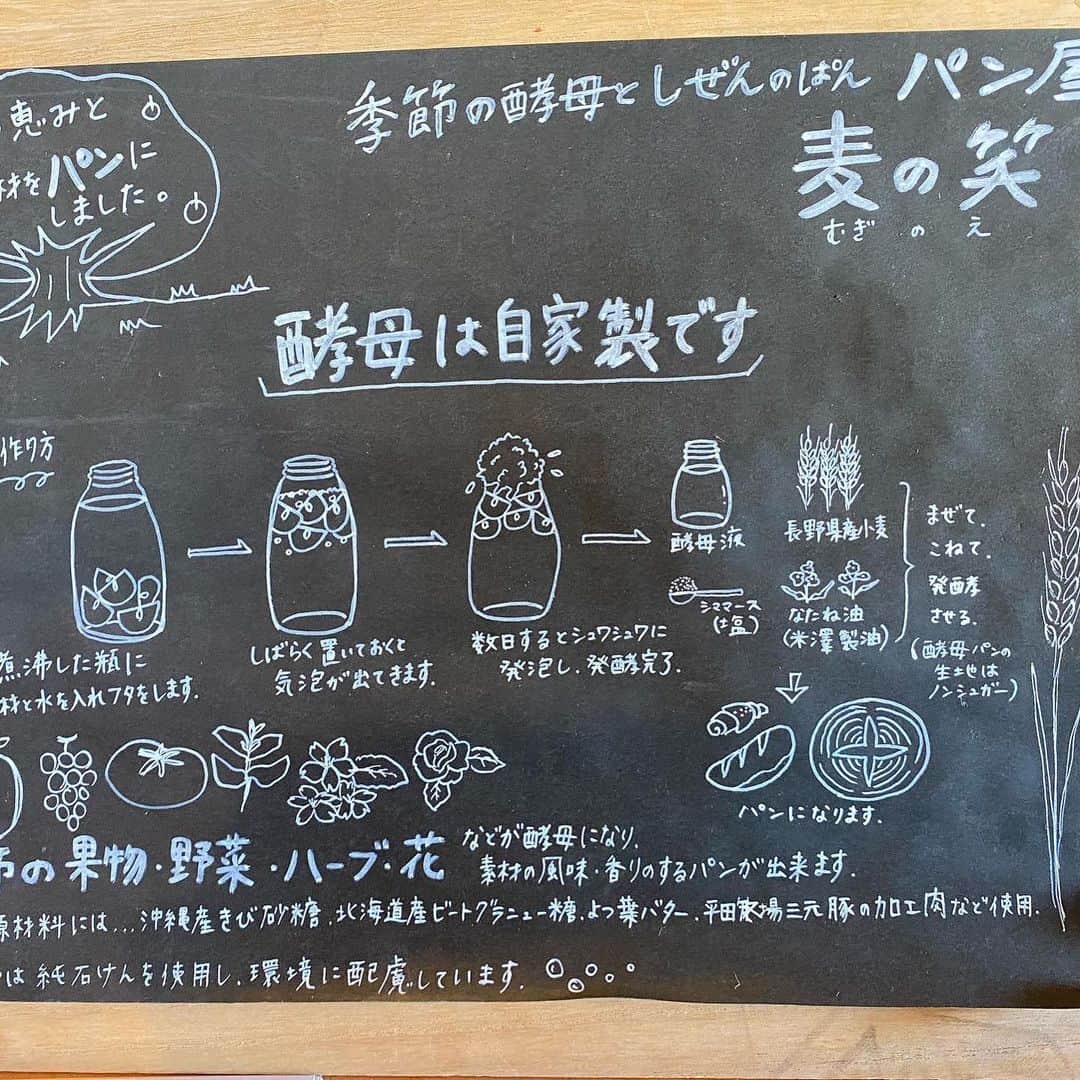 季節の酵母としぜんのぱん パン屋
麦の笑
むぎのえ
恵みと
材をパンに
しました。
酵母は自家製です
作り方
煮沸した瓶に
材と水を入れフタをします.
しばらく置いておくと
気泡が出てきます.
数日するとシュワシュワに
発泡し、発酵完了.
酵母液
シママース
(塩)
長野県産小麦
なたね油
(米澤製油)
まぜて、
こねて、
発酵
させる.
(酵母パンの
生地は
ノンシュガー)
パンになります.
節の果物・野菜・ハーブ・花
などが酵母になり、
素材の風味・香りのするパンが出来ます.
原材料には...沖縄産きび砂糖、北海道産ビートグラニュー糖、よつ葉バター、平田牧場三元豚の加工肉など使用.
は純石けんを使用し、環境に配慮しています.